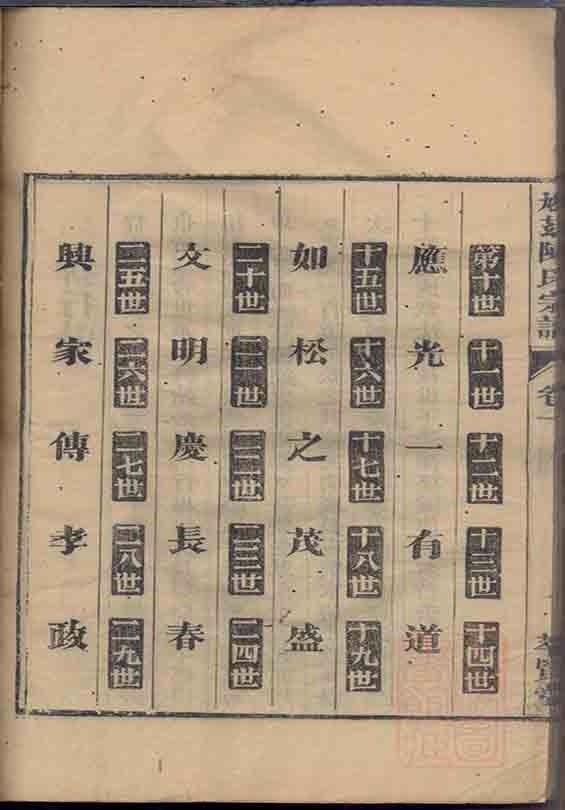 陳氏宗譜 卷一
第十世 十一世 十二世 十三世 十四世
應光一有道
十五世 十六世 十七世 十八世 十九世
如松之茂盛
二十世 二一世 二二世 二三世 二四世
文明慶長春
二五世 二六世 二七世 二八世 二九世
興家傳孝政